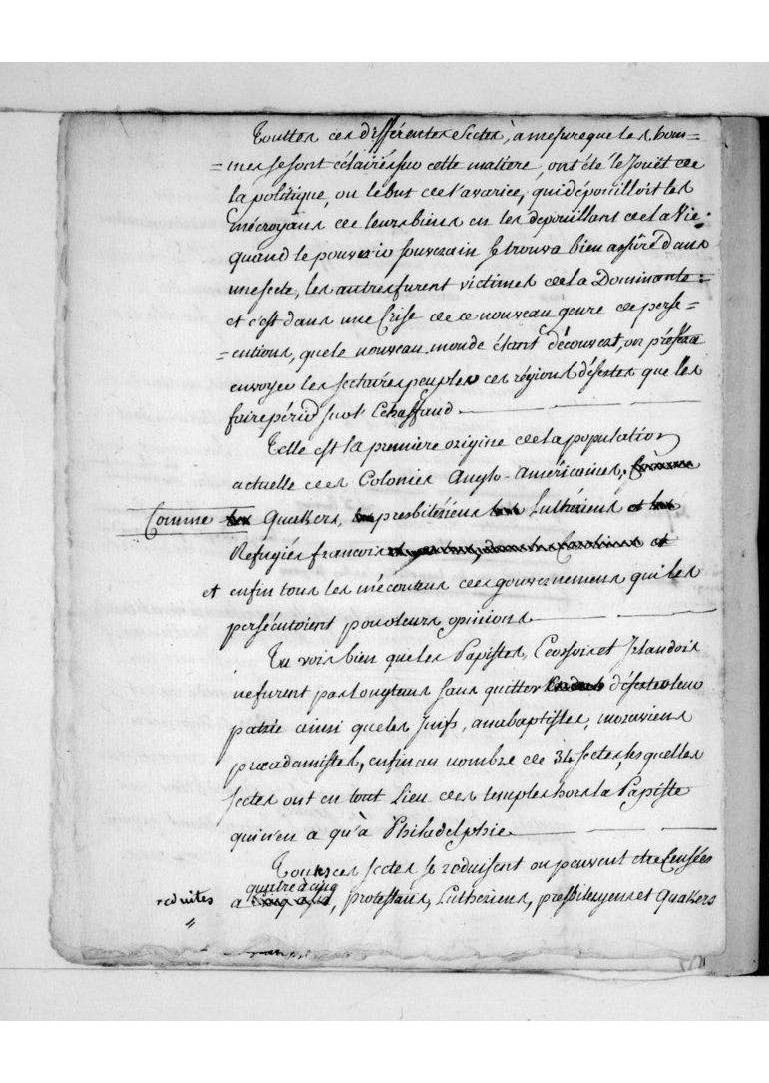 Touttes ces différentes sectes, à mesure que les hom=
=mes se sont éclairés sur cette matiere, ont été le Jouët de
la politique, ou le but de l'avarice, qui dépouilloit les
mécroyans de leurs biens en les depouillans de la Vie.
quand le pouvoir souverain se trouva bien assuré dans
une secte, les autres furent victimes de la Dominante :
et c'est dans une Crise de ce nouveau genre de persé=
=cutions, que le nouveau monde étant découvert, on préféra
envoyer les sectaires peupler ces régions désertes que les
faire périr sur l'Echaffaud.
Telle est la premiere origine de la population
actuelle des Colonies Anglo-Américaines,
Comme Quakers, presbitériens Luthériens
Refugiés francois
et enfin tous les mécontens des gouvernemens qui les
persécutoient pour leurs opinions.
Tu vois bien que les Papistes, Ecossois et Irlandois
ne furent pas longtems sans quitter déserter leur
patrie ainsi que les Juifs, anabaptistes, moraviens
præadamistes, enfin au nombre de 34 sectes, lesquelles
sectes ont en tout Lieu des temples hors la Papiste
qui n'en a qu'à Philadelphie.
Toutes ces sectes se reduisent ou peuvent etre Censées
reduites a quatre à cinq, protestans, Lutheriens, presbiteryens et Quakers